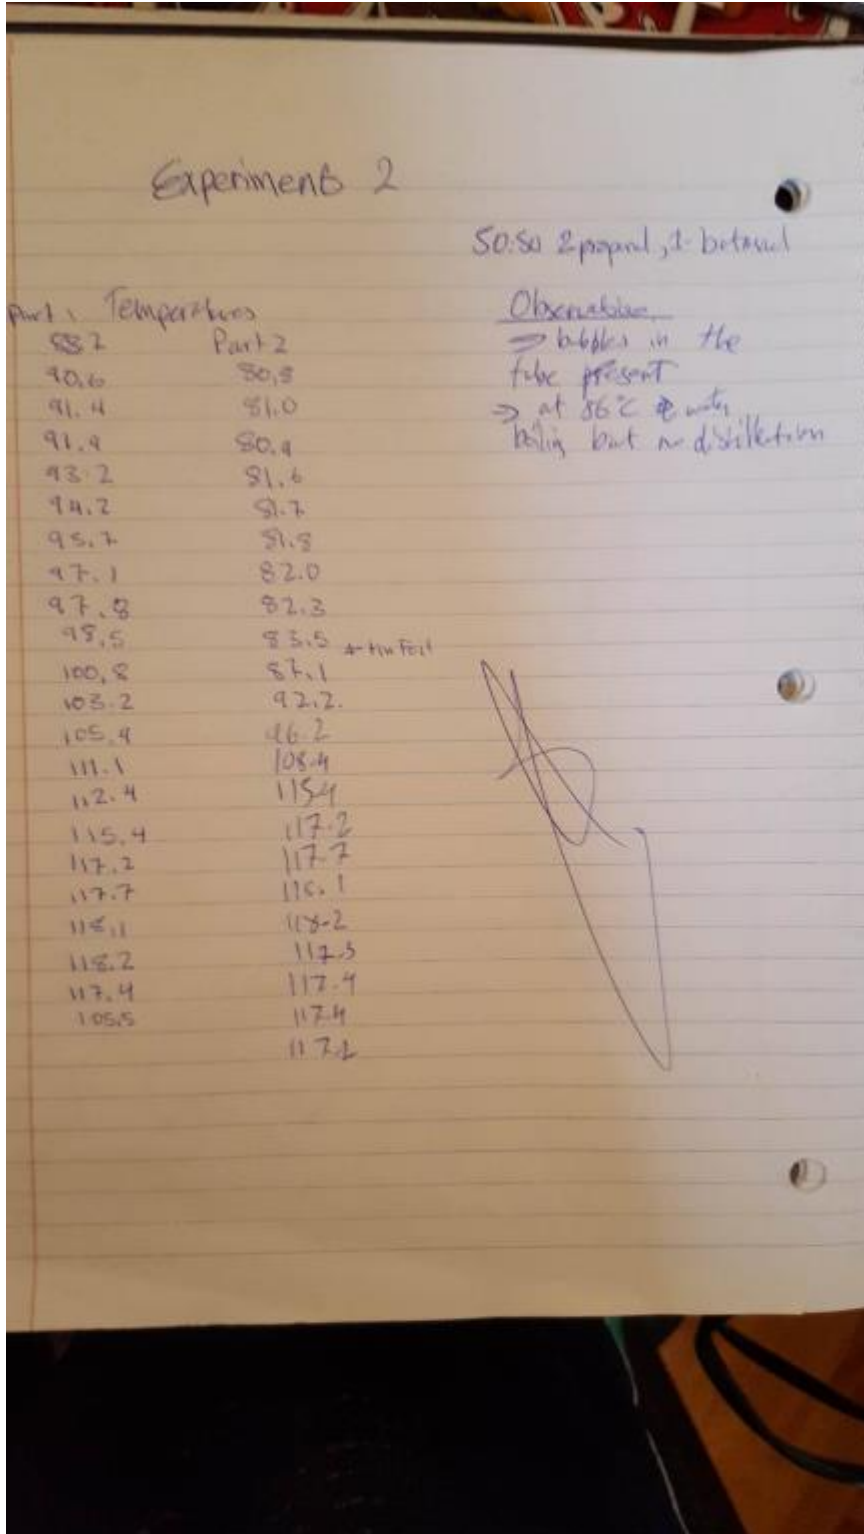 Experiment 2
50:50 2 propanol, 1-butanol
Part 1 Temperatures
Part 2
88.2
90.6
91.4
91.9
93.2
94.2
95.7
97.1
97.8
98.5
100.8
103.2
105.9
111.1
112.4
115.4
117.2
117.7
118.1
118.2
117.4
105.5
80.8
81.0
80.9
81.6
81.7
81.8
82.0
82.3
83.5 ← tin foil
87.1
92.2
96.2
108.4
115.4
117.2
117.7
118.1
118.2
117.5
117.4
117.4
117.1
Observation
⇒ bubbles in the
tube present
⇒ at 86°C water
boiling but no distillation